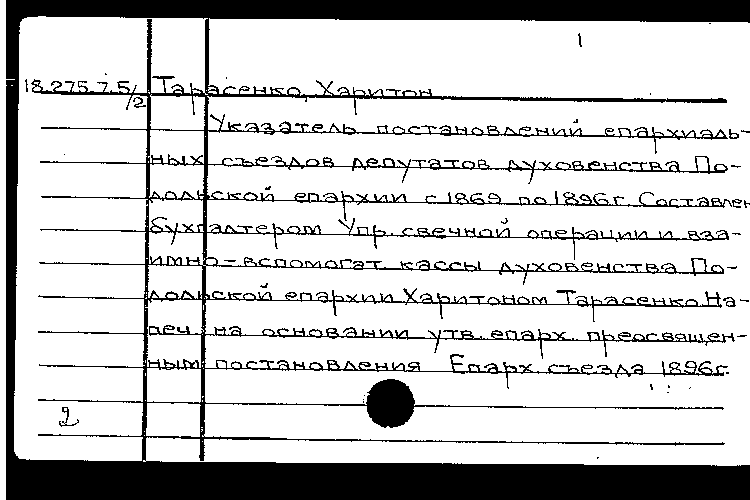 1
18.275.7.5/2 Тарасенко, Харитон
Указатель постановлений епархиаль-
ных съездов депутатов духовенства По-
дольской епархии с 1869 по 1896 г. Составлен
бухгалтером Упр. свечной операции и вза-
имно-вспомогат. кассы духовенства По-
дольской епархии Харитоном Тарасенко. На-
печ. на основании утв. епарх. преосвящен-
ным постановления Епарх. съезда 1896 г.